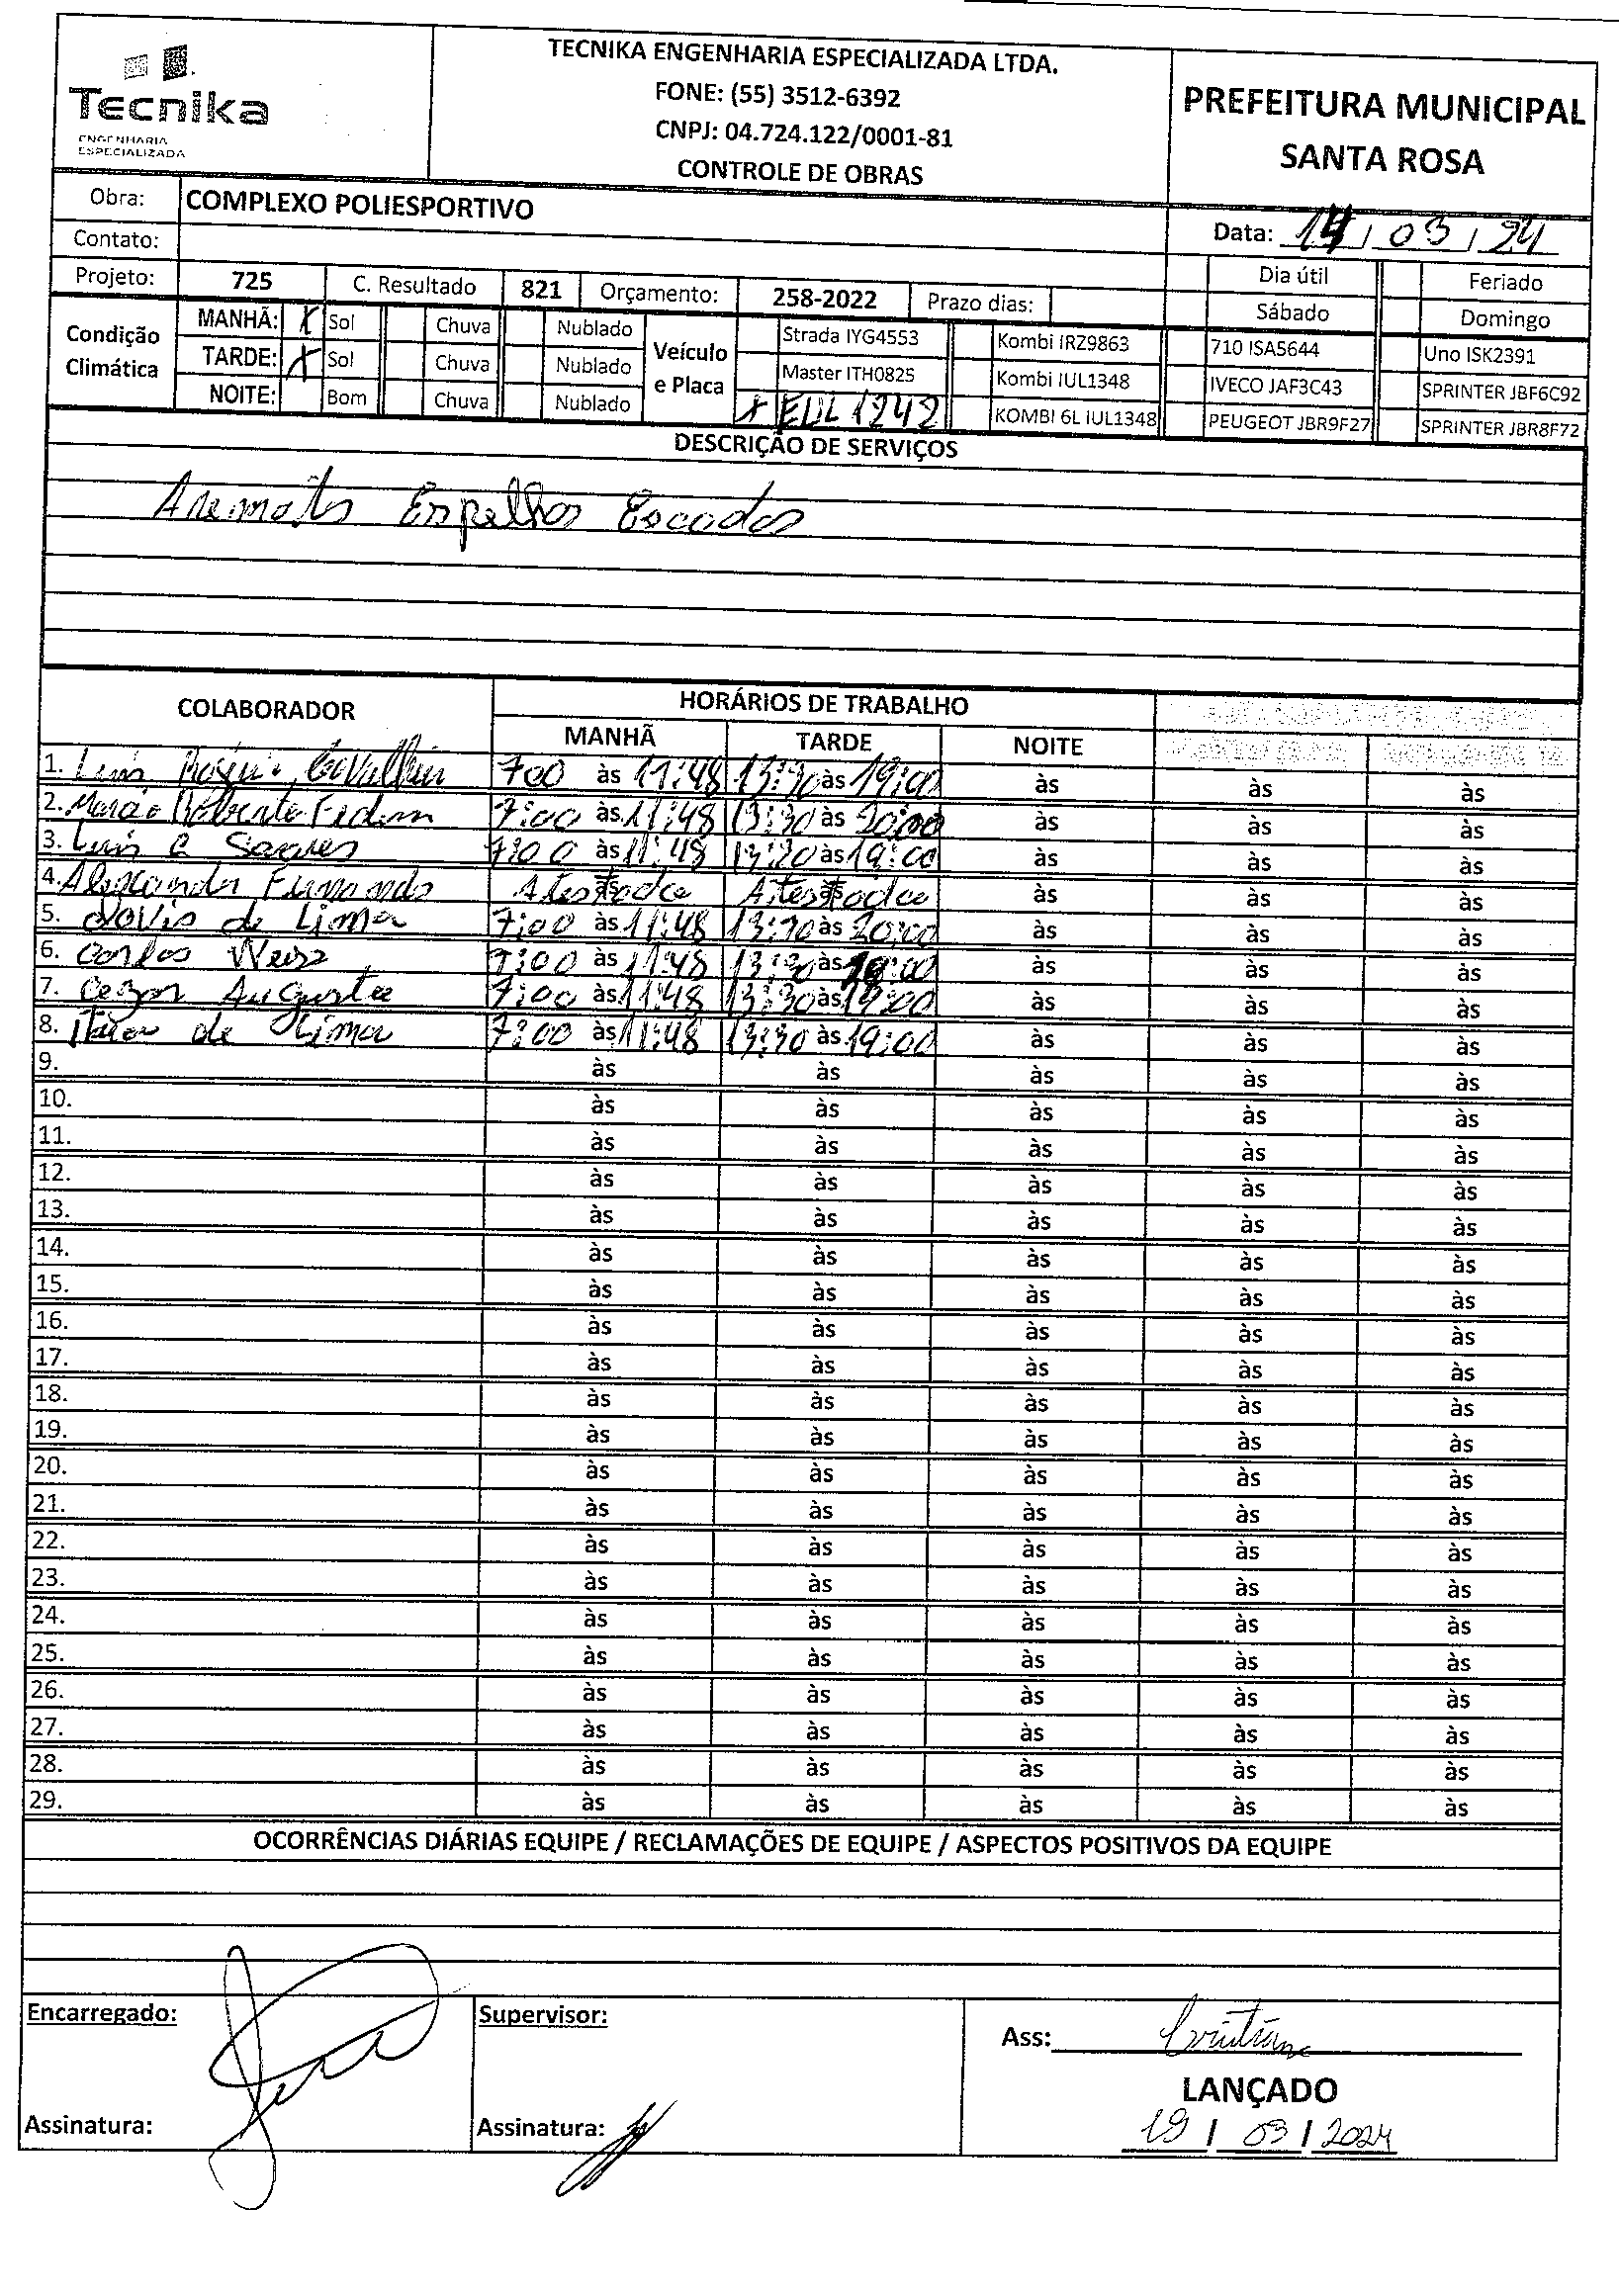 Tecnika
ENGENHARIA
ESPECIALIZADA
TECNIKA ENGENHARIA ESPECIALIZADA LTDA.
FONE: (55) 3512-6392
CNPJ: 04.724.122/0001-81
CONTROLE DE OBRAS
PREFEITURA MUNICIPAL
SANTA ROSA
Obra: COMPLEXO POLIESPORTIVO
Data: 14 / 03 / 24
Contato:
Projeto: 725 C. Resultado 821 Orçamento: 258-2022 Prazo dias:
Dia útil Feriado
Sábado Domingo
Condição Climática
MANHÃ: X Sol Chuva Nublado
TARDE: X Sol Chuva Nublado
NOITE: Bom Chuva Nublado
Veículo e Placa
Strada IYG4553 Kombi IRZ9863 710 ISA5644 Uno ISK2391
Master ITH0825 Kombi IUL1348 IVECO JAF3C43 SPRINTER JBF6C92
X EUL 1242 KOMBI 6L IUL1348 PEUGEOT JBR9F27 SPRINTER JBR8F72
DESCRIÇÃO DE SERVIÇOS
Espelhos Escadas
COLABORADOR HORÁRIOS DE TRABALHO
MANHÃ TARDE NOITE
1. Luis 700 às 11:48 13:30 às 19:00 às às às
2. Marcio Roberto 7:00 às 11:48 13:30 às 20:00 às às às
3. Luis C Soares 7:00 às 11:48 13:30 às 19:00 às às às
4. Alexandre Fernando Atestado Atestado às às às
5. de Lima 7:00 às 11:48 13:30 às 20:00 às às às
6. Carlos 7:00 às 11:48 13:30 às 19:00 às às às
7. Cezar Augusto 7:00 às 11:48 13:30 às 19:00 às às às
8. de Lima 7:00 às 11:48 13:30 às 19:00 às às às
9. às às às às às
10. às às às às às
11. às às às às às
12. às às às às às
13. às às às às às
14. às às às às às
15. às às às às às
16. às às às às às
17. às às às às às
18. às às às às às
19. às às às às às
20. às às às às às
21. às às às às às
22. às às às às às
23. às às às às às
24. às às às às às
25. às às às às às
26. às às às às às
27. às às às às às
28. às às às às às
29. às às às às às
OCORRÊNCIAS DIÁRIAS EQUIPE / RECLAMAÇÕES DE EQUIPE / ASPECTOS POSITIVOS DA EQUIPE
Encarregado:
Supervisor:
Ass: Cristiane
LANÇADO
Assinatura:
Assinatura:
19 / 03 / 2024